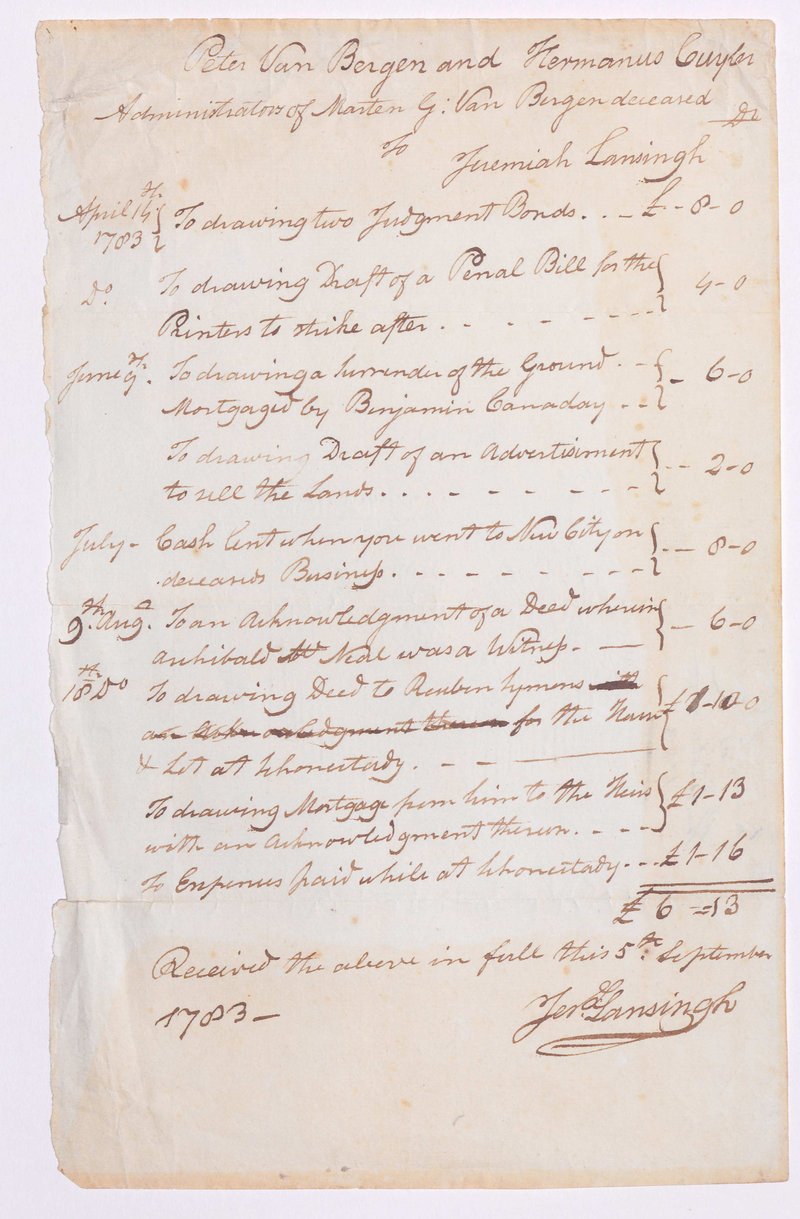 Peter Van Bergen and Hermanus Cuyler
Administrators of Marten G: Van Bergen deceased Dr
To Jeremiah Lansingh
April 14th 1783 To drawing two Judgment Bonds . . — £ - 8 - 0
Do. To drawing Draft of a Penal Bill for the
Printers to strike after . . - - - - - - 4 - 0
June 9th. To drawing a Surrender of the Ground . -
Mortgaged by Benjamin Canaday . - - 6 - 0
To drawing Draft of an Advertisment
to sell the Lands . . - - - - - - - - 2 - 0
July - Cash lent when you went to New City on
deceaseds Business . - - - - - - - - - 8 - 0
9th. Augt. To an Acknowledgment of a Deed wherein
Archibald Mc Neal was a Witness - — — 6 - 0
18th Do To drawing Deed to Reuben Symons with
an Acknowledgment thereon for the House
& Lot at Schonectady . - - —
To drawing Mortgage from him to the Heirs
with an Acknowledgment thereon . - - - £1 - 13
To Expences paid while at Schonectady . . . £1 - 16
£ 6 = 13
Received the above in full this 5th. September
1783 —
Jera. Lansingh